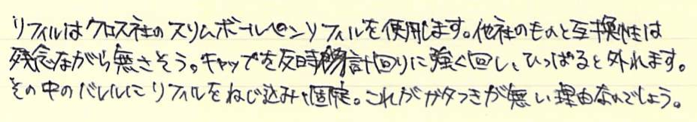 リフィルはクロス社のスリムボールペンリフィルを使用します。他社のものと互換性は
残念ながら無さそう。キャップを反時計回りに強く回し、ひっぱると外れます。
その中のバレルにリフィルをねじ込み、固定。これがガタつきが無い理由なんでしょう。